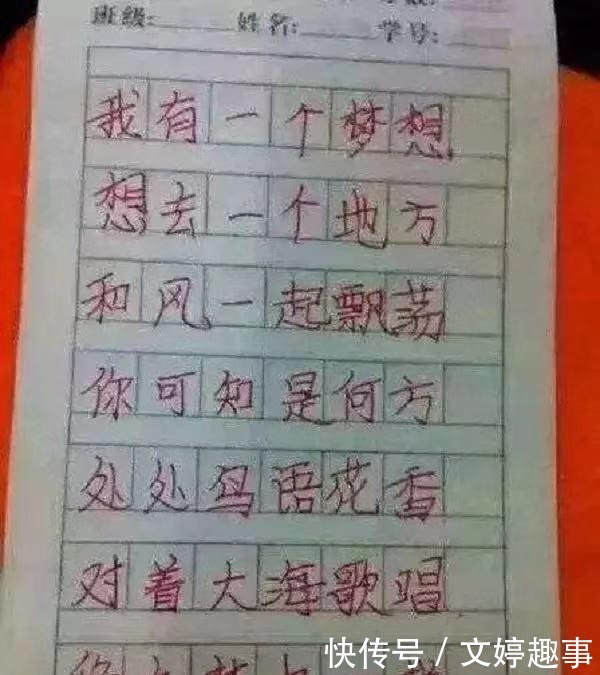 班级: 姓名: 学号:
我有一个梦想
想去一个地方
和风一起飘荡
你可知是何方
处处鸟语花香
对着大海歌唱
快传号 / 文婷趣事